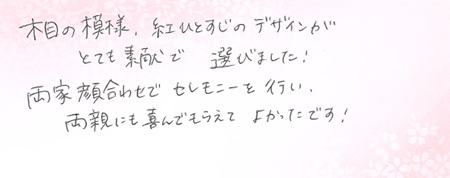 木目の模様、紅ひとすじのデザインが
とても素敵で 選びました!
両家顔合わせで セレモニーを行い、
両親にも喜んでもらえて よかったです!